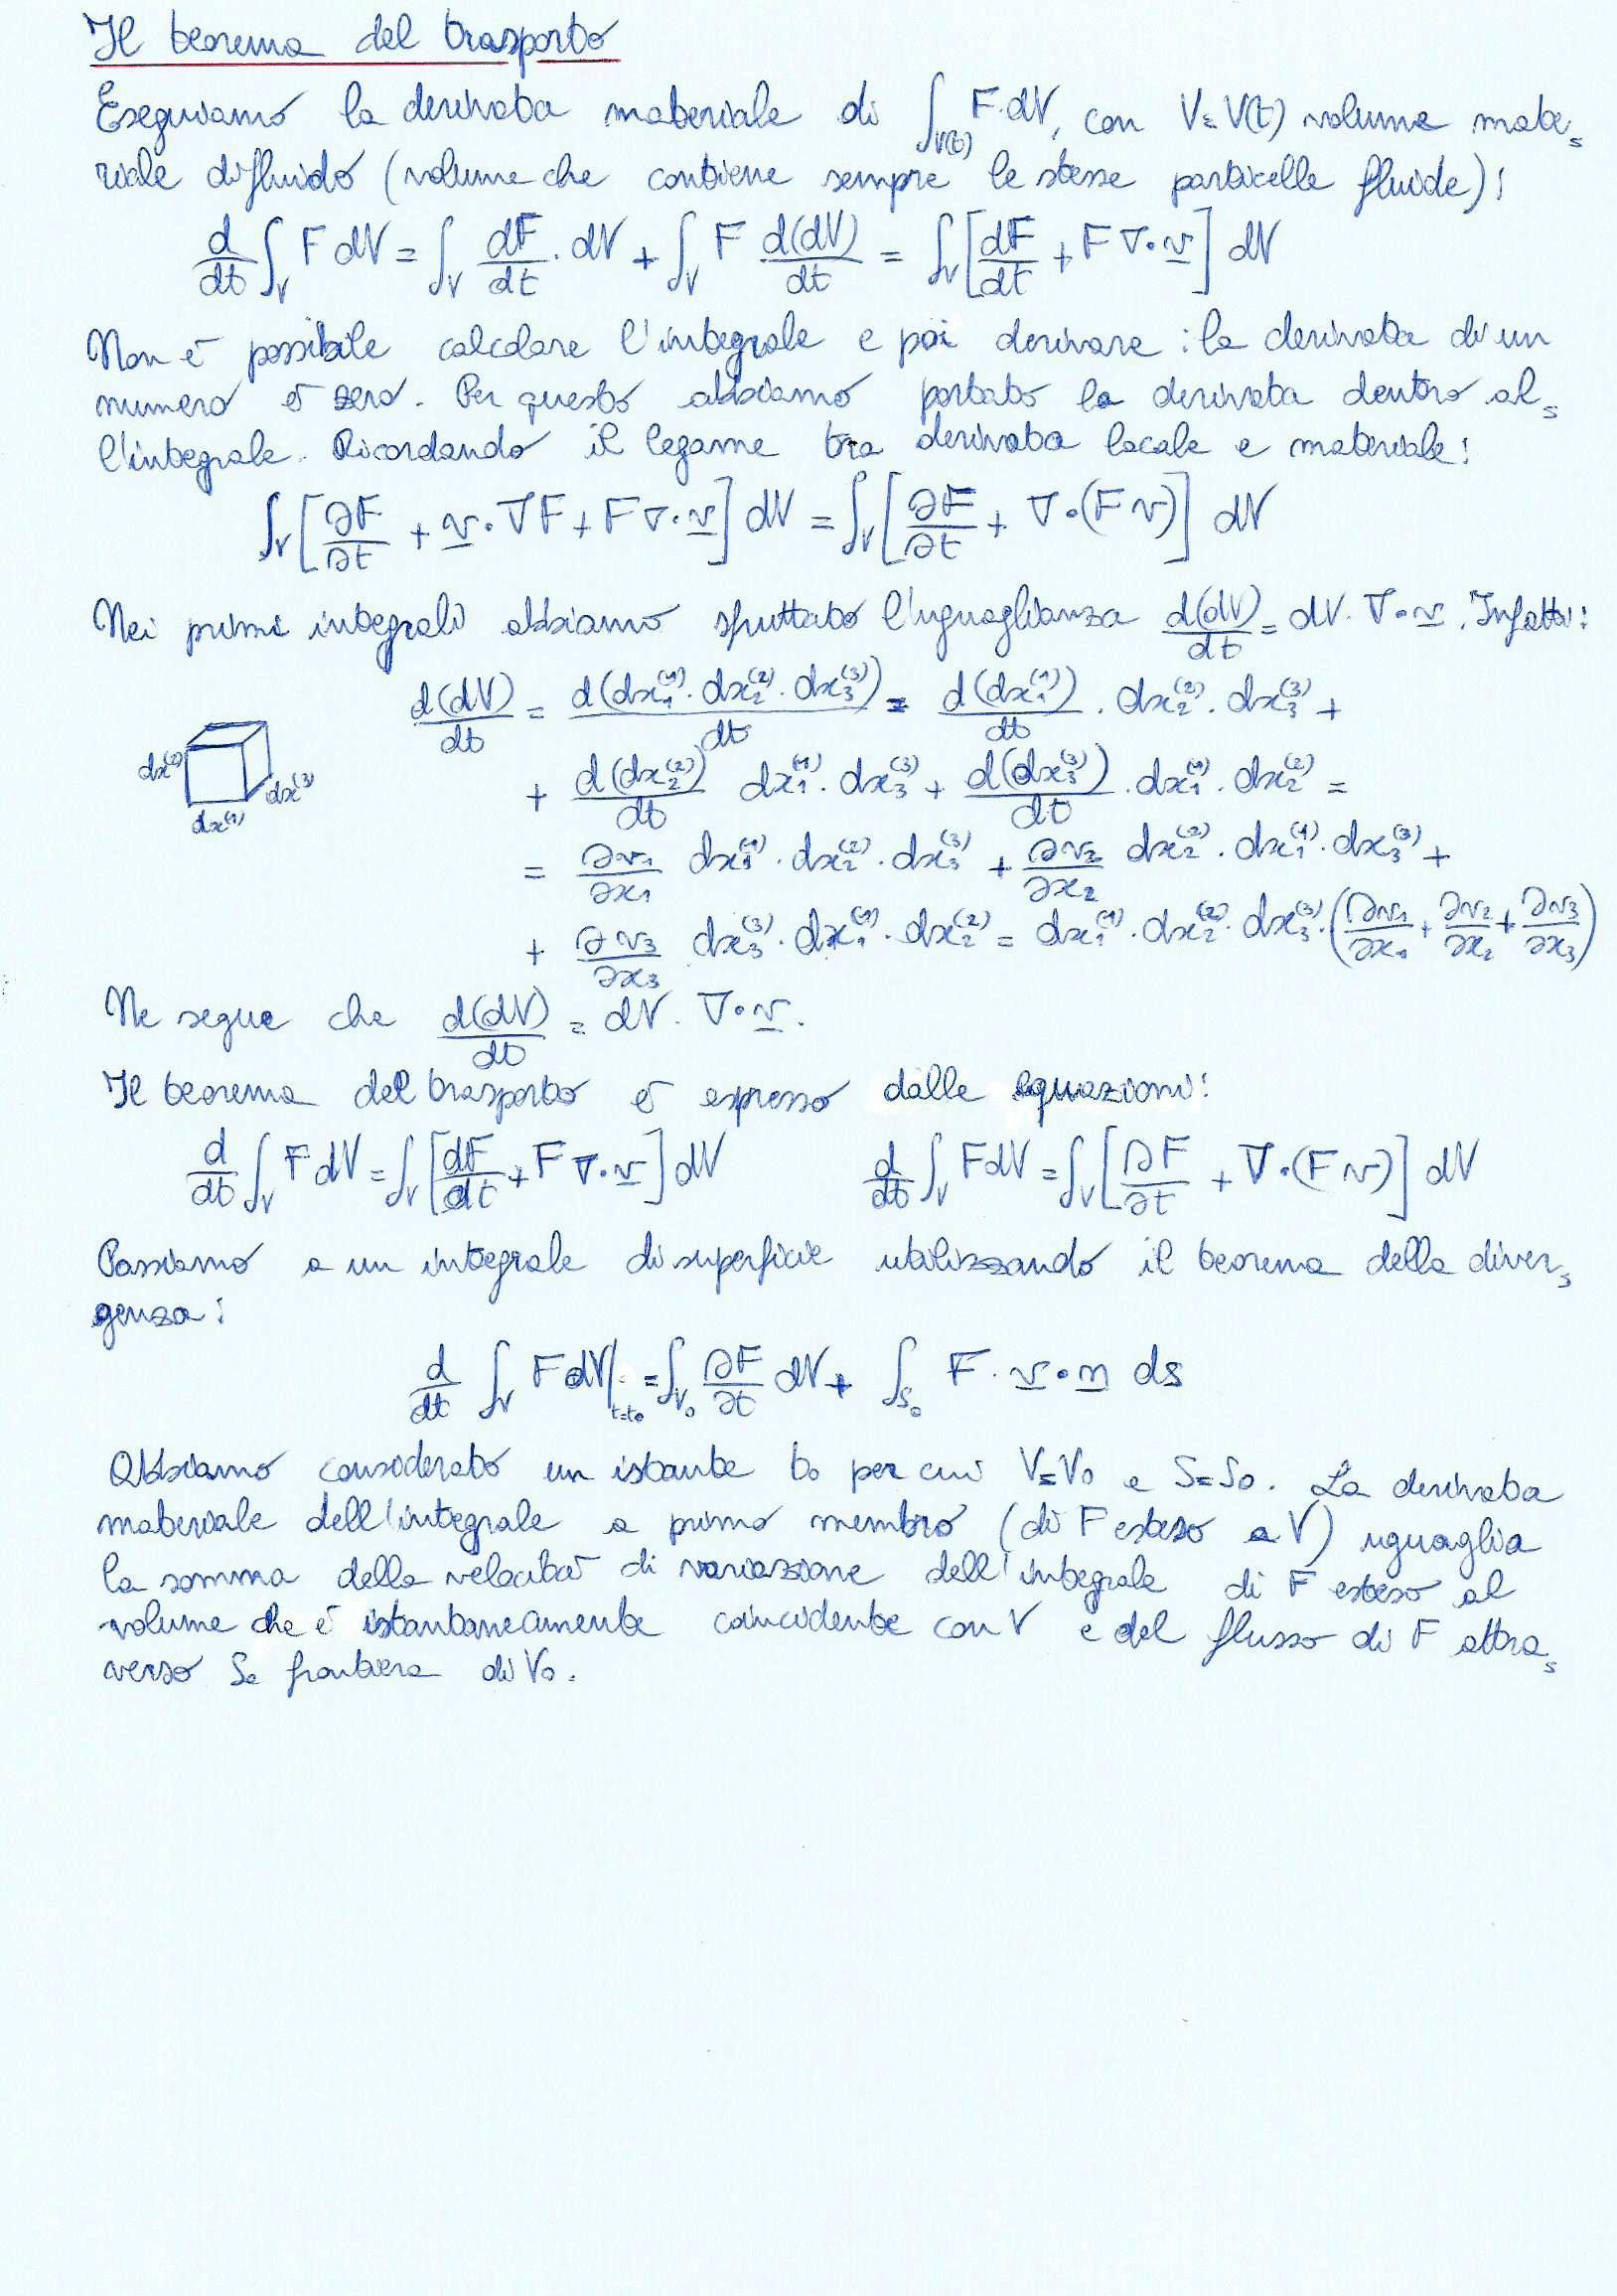 Il teorema del trasporto
Eseguiamo la derivata materiale di ∫_V(t) F·dV, con V=V(t) volume mate-
riale di fluido (volume che contiene sempre le stesse particelle fluide):
d/dt ∫_V F dV = ∫_V dF/dt · dV + ∫_V F d(dV)/dt = ∫_V [dF/dt + F ∇•v] dV
Non è possibile calcolare l'integrale e poi derivare: la derivata di un
numero è zero. Per questo abbiamo portato la derivata dentro al-
l'integrale. Ricordando il legame tra derivata locale e materiale:
∫_V [∂F/∂t + v•∇F + F ∇•v] dV = ∫_V [∂F/∂t + ∇•(F v)] dV
Nei primi integrali abbiamo sfruttato l'uguaglianza d(dV)/dt = dV · ∇•v. Infatti:
d(dV)/dt = d(dx₁⁽¹⁾·dx₂⁽²⁾·dx₃⁽³⁾)/dt = d(dx₁⁽¹⁾)/dt · dx₂⁽²⁾·dx₃⁽³⁾ +
+ d(dx₂⁽²⁾)/dt dx₁⁽¹⁾·dx₃⁽³⁾ + d(dx₃⁽³⁾)/dt · dx₁⁽¹⁾·dx₂⁽²⁾ =
dx⁽²⁾ dx⁽³⁾ dx⁽¹⁾
= ∂v₁/∂x₁ dx₁⁽¹⁾·dx₂⁽²⁾·dx₃⁽³⁾ + ∂v₂/∂x₂ dx₂⁽²⁾·dx₁⁽¹⁾·dx₃⁽³⁾ +
+ ∂v₃/∂x₃ dx₃⁽³⁾·dx₁⁽¹⁾·dx₂⁽²⁾ = dx₁⁽¹⁾·dx₂⁽²⁾·dx₃⁽³⁾·(∂v₁/∂x₁ + ∂v₂/∂x₂ + ∂v₃/∂x₃)
Ne segue che d(dV)/dt = dV · ∇•v.
Il teorema del trasporto è espresso dalle equazioni:
d/dt ∫_V F dV = ∫_V [dF/dt + F ∇•v] dV   d/dt ∫_V F dV = ∫_V [∂F/∂t + ∇•(F v)] dV
Passiamo a un integrale di superficie utilizzando il teorema della diver-
genza:
d/dt ∫_V F dV|_t=t₀ = ∫_V₀ ∂F/∂t dV + ∫_S₀ F · v•n ds
Abbiamo considerato un istante t₀ per cui V=V₀ e S=S₀. La derivata
materiale dell'integrale a primo membro (di F esteso a V) uguaglia
la somma della velocità di variazione dell'integrale di F esteso al
volume che è istantaneamente coincidente con V e del flusso di F attra-
verso S₀ frontiera di V₀.